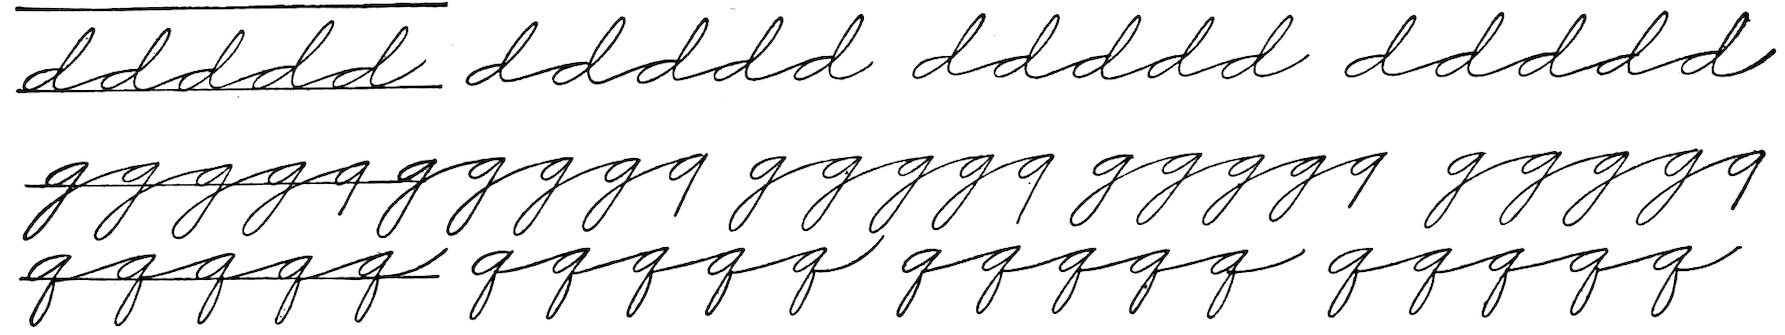 ddddd ddddd ddddd ddddd
ggggg ggggg ggggg ggggg ggggg
qqqqq qqqqq qqqqq qqqqq